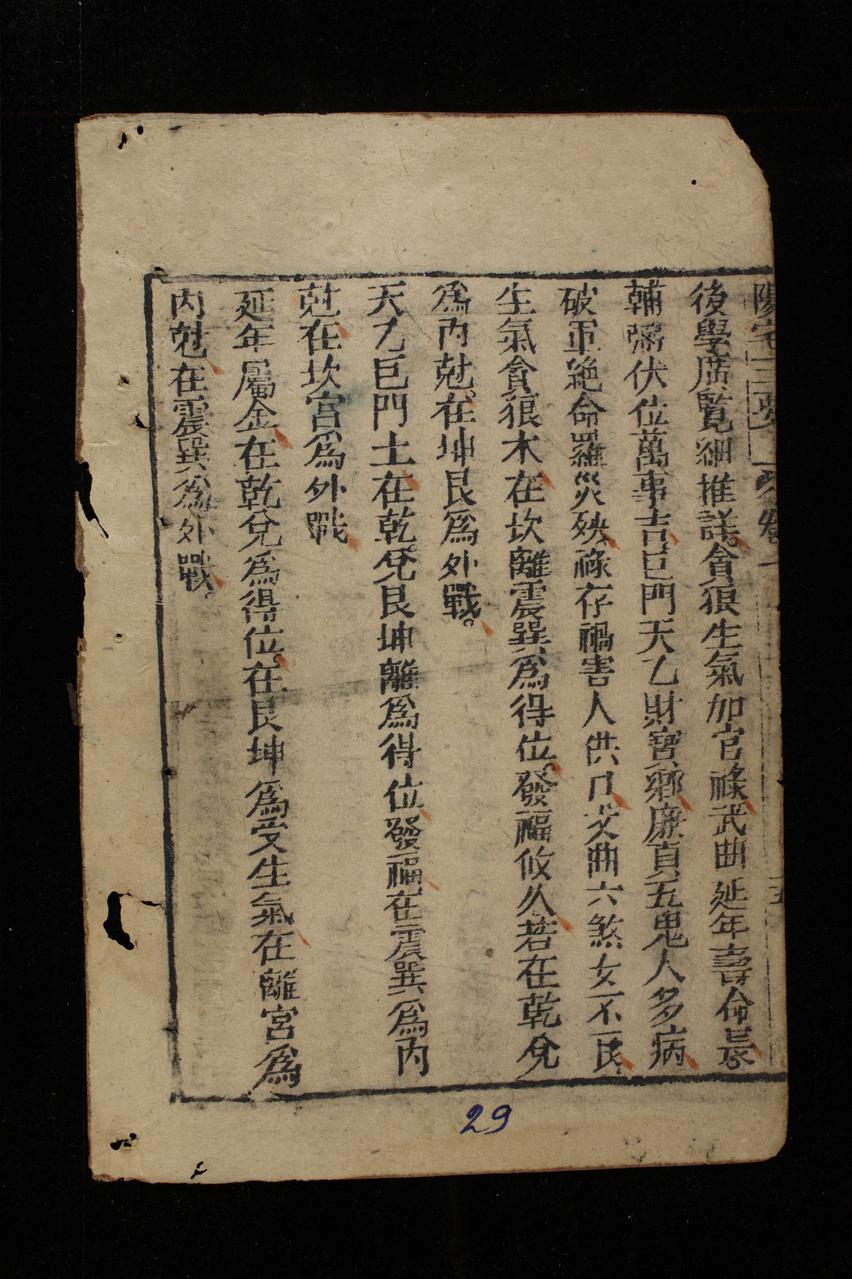 陽宅三要 卷一 五
後學廣覽細推詳貪狼生氣加官祿武曲延年壽命長
輔弼伏位萬事吉巨門天乙財寶鄉廉貞五鬼人多病
破軍絶命罹災殃祿存禍害人供口文曲六煞女不良
生氣貪狼木在坎離震巽為得位發福攸久若在乾兌
為內尅在坤艮為外戰。
天乙巨門土在乾兌艮坤離為得位發福在震巽為內
尅在坎宮為外戰
延年屬金在乾兌為得位在艮坤為受生氣在離宮為
內尅在震巽為外戰。
29